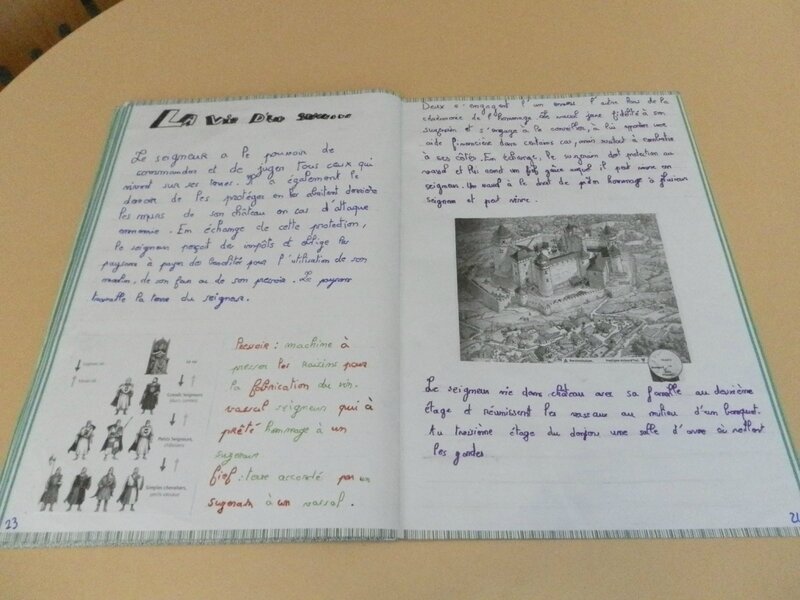 La Vie D'un Seigneur
Le seigneur a le pouvoir de
commander et de juger tous ceux qui
vivent sur ses terres. Il a également le
devoir de les protéger en les abritant derrière
les murs de son château en cas d'attaque
ennemie. En échange de cette protection,
le seigneur perçoit des impôts et oblige les
paysans à payer des banalités pour l'utilisation de son
moulin, de son four ou de son pressoir. Le paysans
travaille la terre du seigneur.
Le roi
Grands Seigneurs
Petits Seigneurs,
Simples chevaliers,
petits vassaux
Pressoir : machine à
presser les raisins pour
la fabrication du vin.
vassal seigneur qui à
prêté hommage à un
suzerain
fief : terre accordé par un
suzerain à un vassal.
23
Deux s'engagent l'un envers l'autre lors de la
cérémonie de l'hommage. Le vassal jure fidélité à son
suzerain et s'engage à le conseiller, à lui apporter une
aide financière dans certains cas, mais surtout à combattre
à ses côtés. En échange, le suzerain doit protection au
vassal et lui cond un fief grâce auquel il peut vivre en
seigneur. Un vassal à le droit de prêter hommage à plusieur
seigneur et peut vivre.
Le seigneur vie dans château avec sa famille au deuxième
étage et réunissent les vasseaux au milieu d'un banquet.
Au troisième étage du donjon une salle d'arme où veillent
les gardes